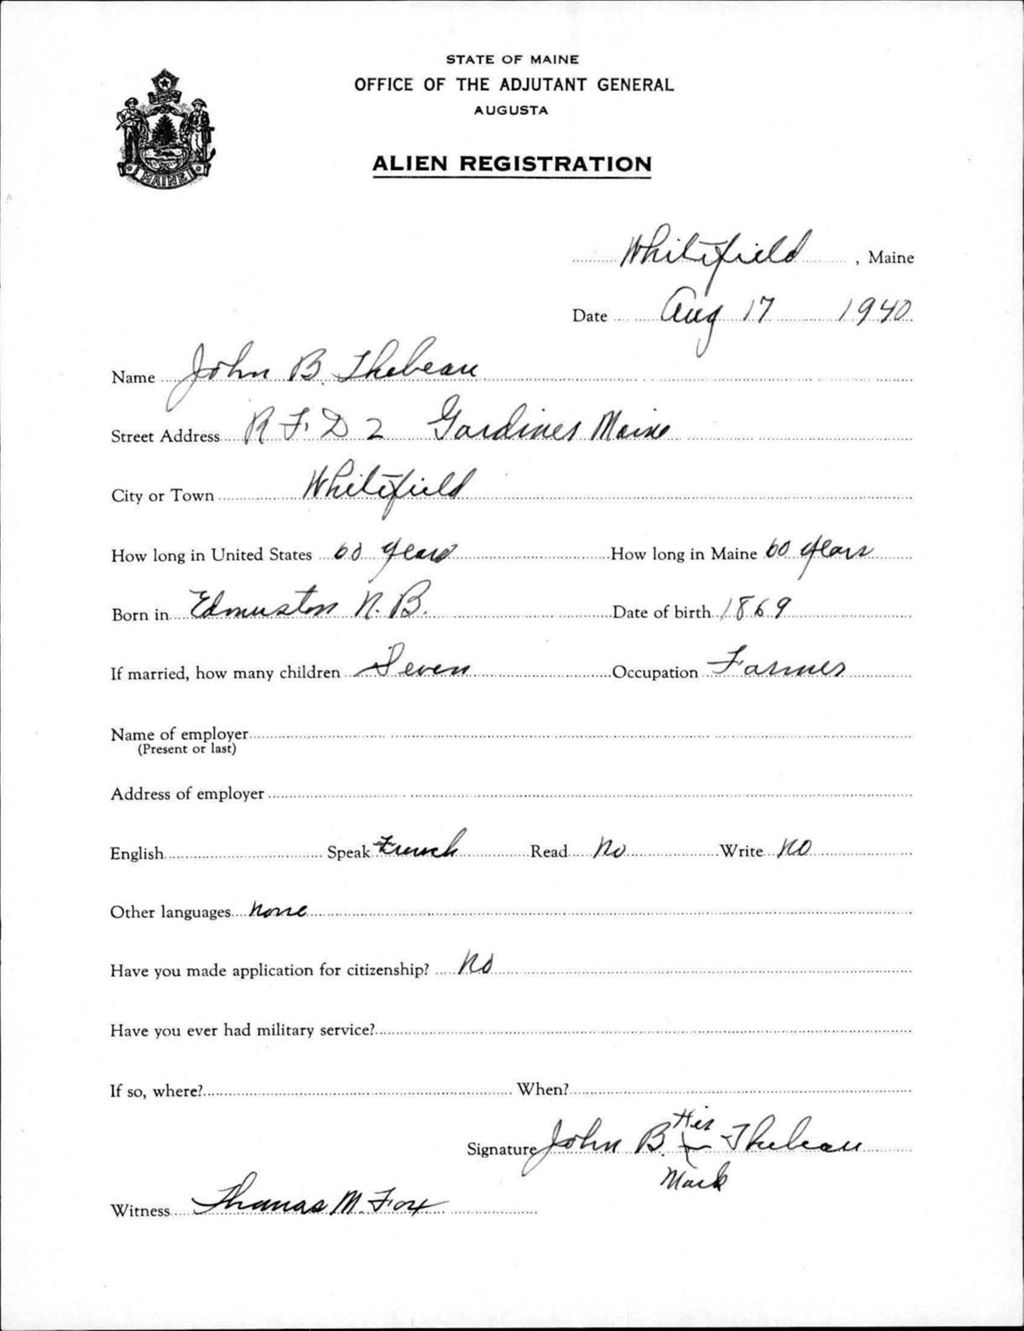 STATE OF MAINE
OFFICE OF THE ADJUTANT GENERAL
AUGUSTA
ALIEN REGISTRATION
MAINE
Whitefield, Maine
Date Aug 17 1940
Name John B. Thebeau
Street Address R. F. D 2 Gardiner Maine
City or Town Whitefield
How long in United States 60 years How long in Maine 60 years
Born in Edmuston N. B. Date of birth 1869
If married, how many children Seven Occupation Farmer
Name of employer
(Present or last)
Address of employer
English Speak French Read No Write No
Other languages none
Have you made application for citizenship? No
Have you ever had military service?
If so, where? When?
His
Signature John B. Thebeau
Mark
Witness Thomas M. Fox